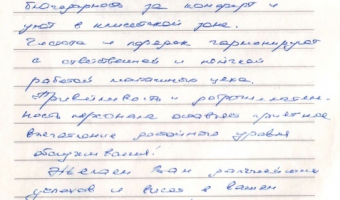 благодарность за комфорт и
уют в клиентской зоне.
Чистота и порядок гармонируют
с ответственной и чёткой
работой магазинного цеха.
Приветливость и доброжелатель-
ность персонала оставляет приятное
впечатление достойного уровня
обслуживания!
Желаем Вам дальнейших
успехов и в вашем